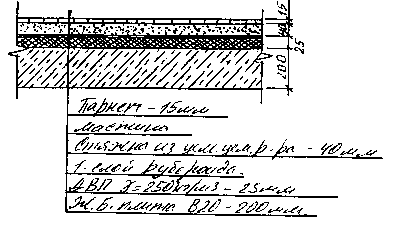 15
40
25
200
Паркет - 15мм
мастика
Стяжка из цем. цем. р-ра - 40мм
1 слой рубероида.
ДВП γ=250кг/м3 - 25мм
Ж.Б. плита В20 - 200мм.